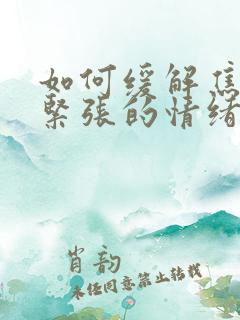 如何缓解焦
緊张的情绪
肖韵
未经同意禁止转载